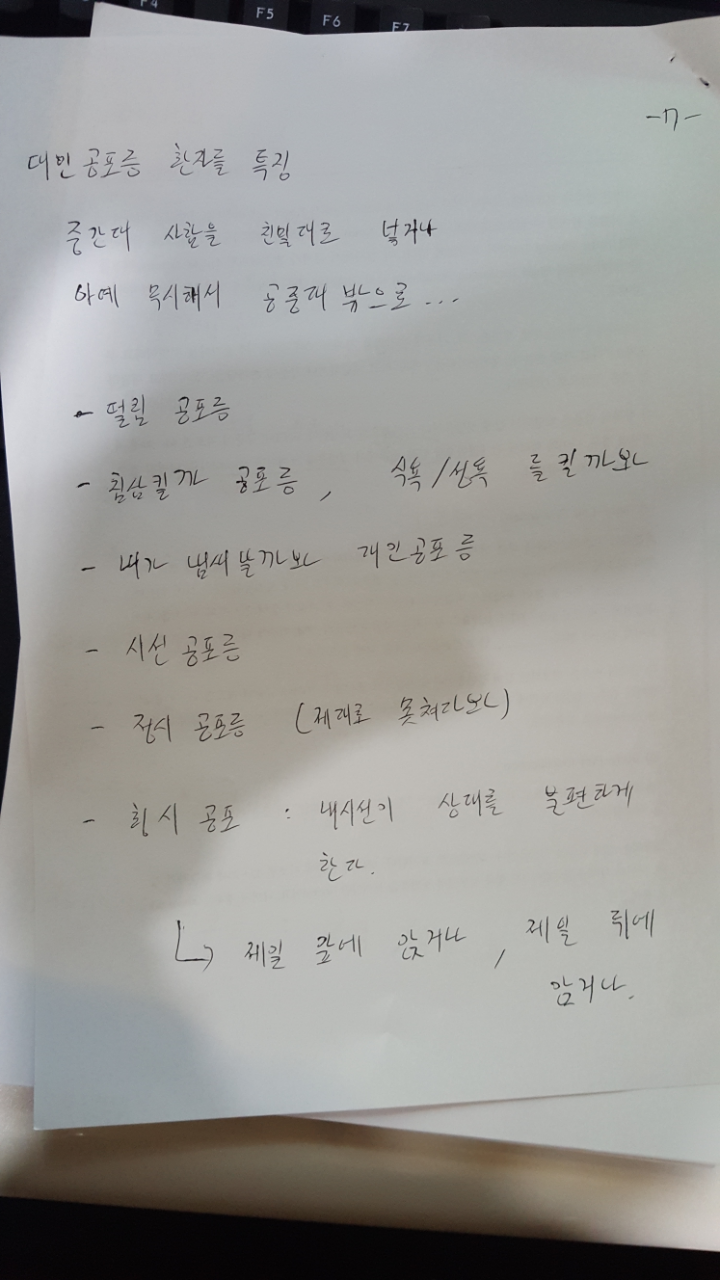 F4 F5 F6 F7
-17-
대인공포증 환자들 특징
중간대 사람을 친밀대로 넣거나
아예 무시해서 공중대 밖으로...
- 떨림 공포증
- 침삼킬까 공포증, 식욕/성욕 들킬까보ㅏ
- 내가 냄새날까보ㅏ 대인공포증
- 시선 공포증
- 정시 공포증 (제대로 못쳐다보ㅏ)
- 횡시 공포 : 내시선이 상대를 불편하게
한다.
↳ 제일 앞에 앉거나, 제일 뒤에
앉거나.